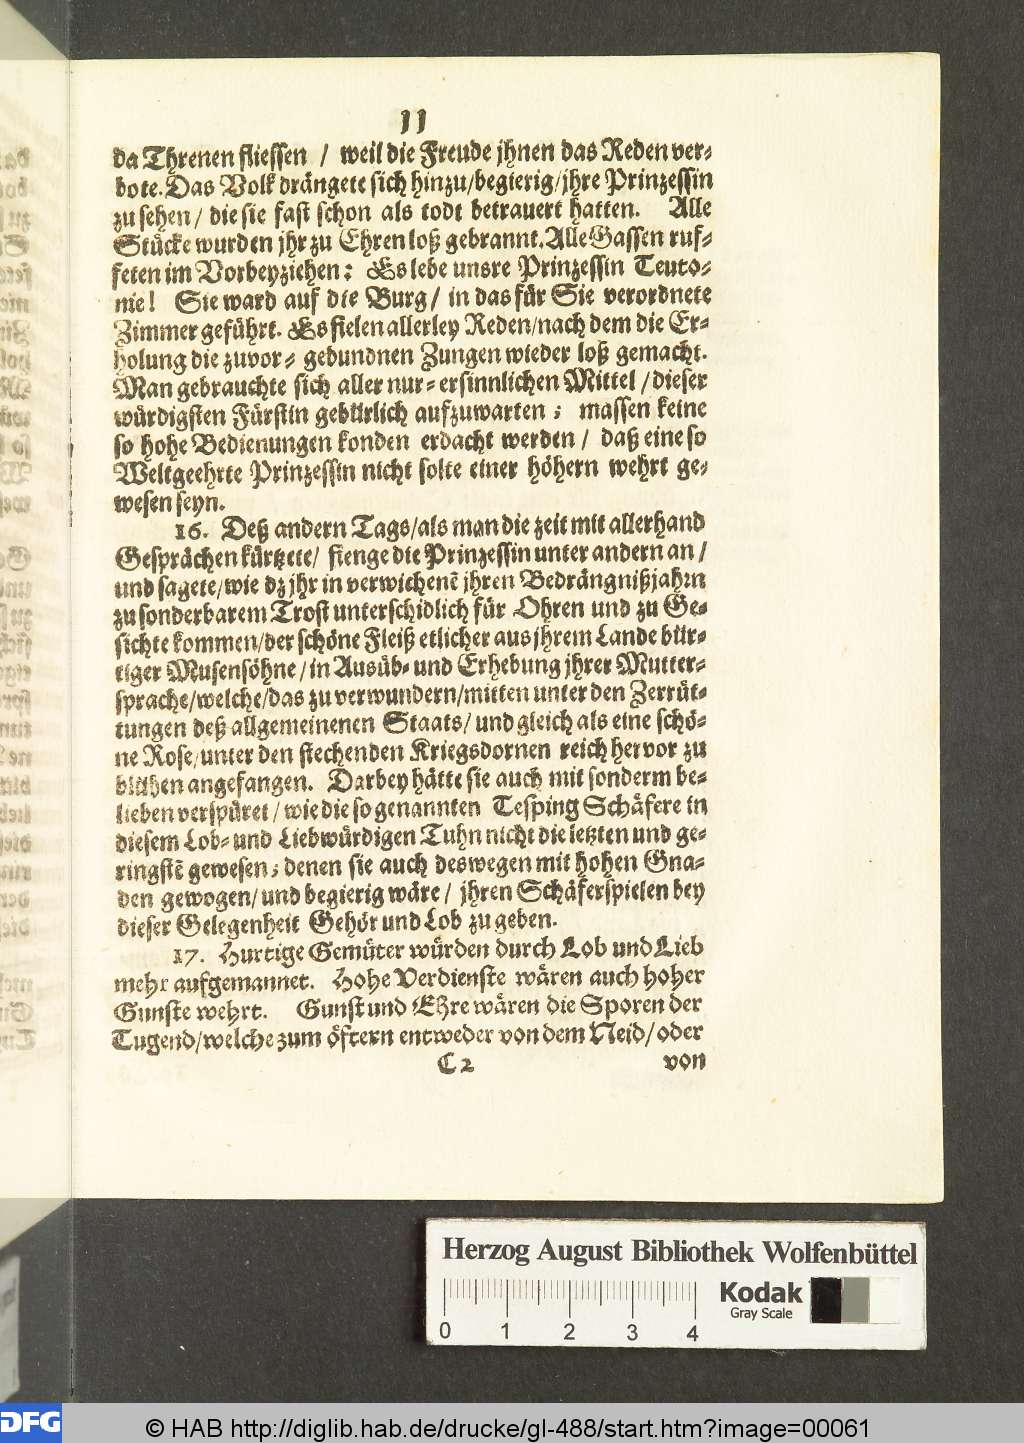 11
da Threnen fliessen / weil die Freude jhnen das Reden ver-
bote. Das Volk drängete sich hinzu / begierig / jhre Prinzessin
zu sehen / die sie fast schon als todt betrauert hatten. Alle
Stücke wurden jhr zu Ehren loß gebrannt. Alle Gassen ruf-
feten im Vorbeyziehen: Es lebe unsre Prinzessin Teuto-
nie! Sie ward auf die Burg / in das für Sie verordnete
Zimmer geführt. Es fielen allerley Reden / nach dem die Er-
holung die zuvor- gebundnen Zungen wieder loß gemacht.
Man gebrauchte sich aller nur- ersinnlichen Mittel / dieser
würdigsten Fürstin gebürlich aufzuwarten; massen keine
so hohe Bedienungen konden erdacht werden / daß eine so
Weltgeehrte Prinzessin nicht solte einer höhern wehrt ge-
wesen seyn.
16. Deß andern Tags / als man die zeit mit allerhand
Gesprächen kürtzete / fienge die Prinzessin unter andern an /
und sagete / wie dz jhr in verwichenẽ jhren Bedrängnißjahrn
zu sonderbarem Trost unterschidlich für Ohren und zu Ge-
sichte kommen / der schöne Fleiß etlicher aus jhrem Lande bür-
tiger Musensöhne / in Ausüb- und Erhebung jhrer Mutter-
sprache / welche / das zu verwundern / mitten unter den Zerrüt-
tungen deß allgemeinenen Staats / und gleich als eine schö-
ne Rose / unter den stechenden Kriegsdornen reich hervor zu
blühen angefangen. Darbey hätte sie auch mit sonderm be-
lieben verspüret / wie die so genannten Tesping Schäfere in
diesem Lob- und Liebwürdigen Tuhn nicht die letzten und ge-
ringstẽ gewesen; denen sie auch deswegen mit hohen Gna-
den gewogen / und begierig wäre / jhren Schäferspielen bey
dieser Gelegenheit Gehör und Lob zu geben.
17. Hurtige Gemüter würden durch Lob und Lieb
mehr aufgemannet. Hohe Verdienste wären auch hoher
Gunste wehrt. Gunst und Ehre wären die Sporen der
Tugend / welche zum öftern entweder von dem Neid / oder
C 2 von
Herzog August Bibliothek Wolfenbüttel
Kodak
Gray Scale
0 1 2 3 4
DFG
© HAB http://diglib.hab.de/drucke/gl-488/start.htm?image=00061